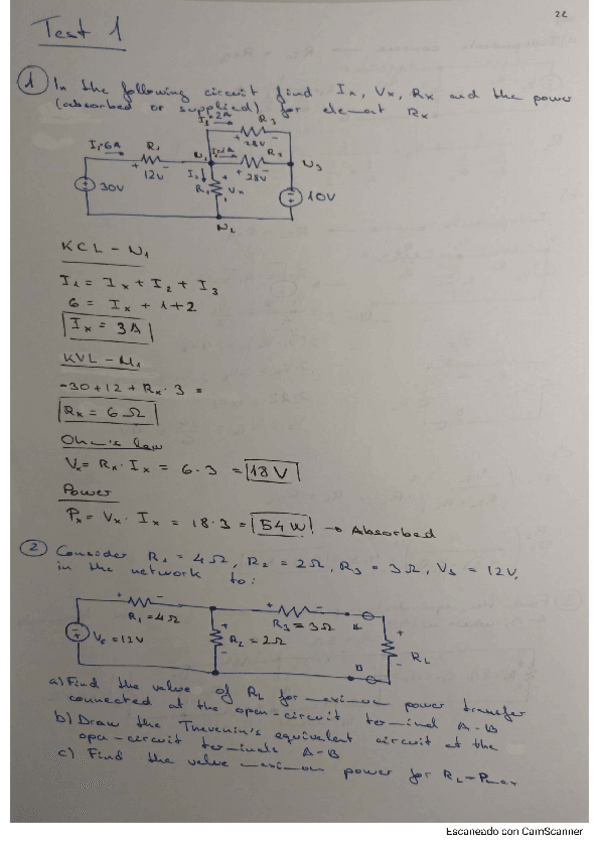 22
Test 1
1 In the following circuit find Ix, Vx, Rx and the power
(absorbed or supplied) for element Rx
I3=2A R3
+ 28V -
I1=6A R1
+ 12V -
N1
R2
+ 28V -
N3
Vx
30V
10V
N2
KCL - N1
I1 = Ix + I2 + I3
6 = Ix + 1 + 2
Ix = 3A
KVL - M1
-30 + 12 + Rx · 3 =
Rx = 6 Ω
Ohm's law
Vx = Rx · Ix = 6 · 3 = 18V
Power
Px = Vx · Ix = 18 · 3 = 54W → Absorbed
2 Consider R1 = 4Ω, R2 = 2Ω, R3 = 3Ω, Vs = 12V,
in the network to:
+ -
R1 = 4Ω
+ -
R3 = 3Ω
A
Vs = 12V
+
R2 = 2Ω
-
+
RL
-
B
a) Find the value of RL for maximum power transfer
connected at the open-circuit terminal A-B
b) Draw the Thevenin's equivalent circuit at the
open-circuit terminals A-B
c) Find the value maximum power for RL - Pmax
Escaneado con CamScanner